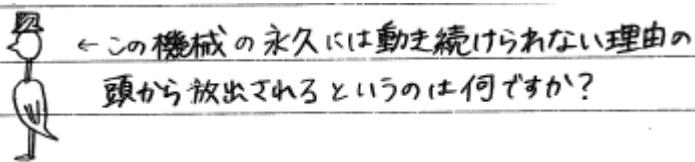 ←この機械の永久には動き続けられない理由の
頭から放出されるというのは何ですか?